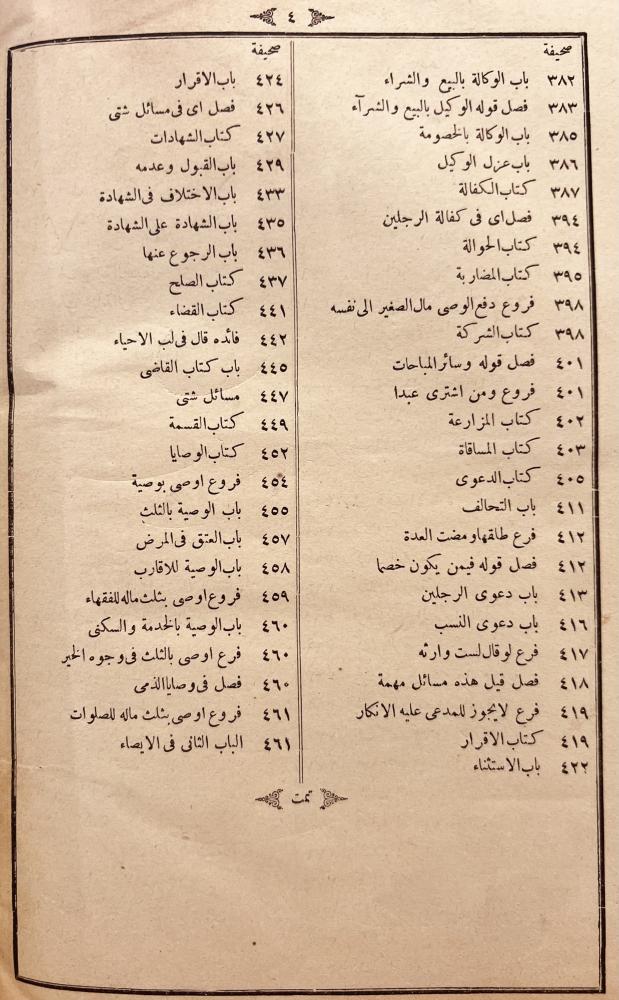 ٤
صحيفة
٣٨٢ باب الوكالة بالبيع والشراء
٣٨٣ فصل قوله الوكيل بالبيع والشرآء
٣٨٥ باب الوكالة بالخصومة
٣٨٦ باب عزل الوكيل
٣٨٧ كتاب الكفالة
٣٩٤ فصل اى فى كفالة الرجلين
٣٩٤ كتاب الحوالة
٣٩٥ كتاب المضاربة
٣٩٨ فروع دفع الوصى مال الصغير الى نفسه
٣٩٨ كتاب الشركة
٤٠١ فصل قوله وسائر المباحات
٤٠١ فروع ومن اشترى عبدا
٤٠٢ كتاب المزارعة
٤٠٣ كتاب المساقاة
٤٠٥ كتاب الدعوى
٤١١ باب التحالف
٤١٢ فرع طلقها ومضت العدة
٤١٢ فصل قوله فيمن يكون خصما
٤١٣ باب دعوى الرجلين
٤١٦ باب دعوى النسب
٤١٧ فرع لو قال لست وارثه
٤١٨ فصل قيل هذه مسائل مهمة
٤١٩ فرع لا يجوز للمدعى عليه الانكار
٤١٩ كتاب الاقرار
٤٢٢ باب الاستثناء
صحيفة
٤٢٤ باب الاقرار
٤٢٦ فصل اى فى مسائل شتى
٤٢٧ كتاب الشهادات
٤٢٩ باب القبول وعدمه
٤٣٣ باب الاختلاف فى الشهادة
٤٣٥ باب الشهادة على الشهادة
٤٣٦ باب الرجوع عنها
٤٣٧ كتاب الصلح
٤٤١ كتاب القضاء
٤٤٢ فائده قال فى لب الاحياء
٤٤٥ باب كتاب القاضى
٤٤٧ مسائل شتى
٤٤٩ كتاب القسمة
٤٥٢ كتاب الوصايا
٤٥٤ فروع اوصى بوصية
٤٥٥ باب الوصية بالثلث
٤٥٧ باب العتق فى المرض
٤٥٨ باب الوصية للاقارب
٤٥٩ فروع اوصى بثلث ماله للفقهاء
٤٦٠ باب الوصية بالخدمة والسكنى
٤٦٠ فرع اوصى بالثلث فى وجوه الخير
٤٦٠ فصل فى وصايا الذمى
٤٦١ فروع اوصى بثلث ماله للصلوات
٤٦١ الباب الثانى فى الايصاء
تمت